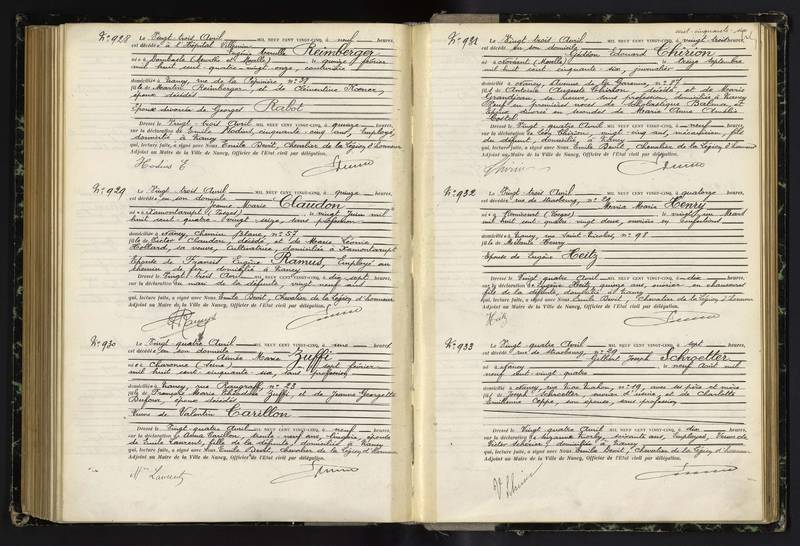 N° 928 Le Vingt trois Avril MIL NEUF CENT VINGT-CINQ, à neuf heures,
est décédée à l'Hôpital Villemin
Eugénie Marcelle Reimberger
née à Dombasle (Meurthe et Moselle) le quinze février
mil huit cent quatre-vingt-onze, couturière
domiciliée à Nancy, rue de la Pépinière, n° 38
fille de Martin Reimberger, et de Clémentine
époux décédés
Epouse divorcée de Georges Rabot
Dressé le Vingt-trois Avril MIL NEUF CENT VINGT-CINQ, à quinze heures,
sur la déclaration de Emile Hodius, cinquante-cinq ans, Employé,
domicilié à Nancy
qui, lecture faite, a signé avec Nous Emile Devit, Chevalier de la Légion d'honneur
Adjoint au Maire de la Ville de Nancy, Officier de l'Etat civil par délégation.
Hodius E
N° 929 Le Vingt trois Avril MIL NEUF CENT VINGT-CINQ, à quinze heures,
est décédée en son domicile
Jeanne Marie Claudon
née à Ramonchamp (Vosges) le vingt Juin mil
huit cent quatre-vingt seize, sans profession
domiciliée à Nancy, Chemin Blanc, n° 57
fille de Victor Claudon, décédé, et de Marie Léonie
Holland, sa veuve, Cultivatrice, domiciliée à Ramonchamp
Epouse de Francis Eugène Ramus, Employé au
chemin de fer, domicilié à Nancy
Dressé le Vingt-trois Avril MIL NEUF CENT VINGT-CINQ, à dix sept heures,
sur la déclaration du mari de la défunte, vingt neuf ans
qui, lecture faite, a signé avec Nous Emile Devit, Chevalier de la Légion d'honneur
Adjoint au Maire de la Ville de Nancy, Officier de l'Etat civil par délégation.
N° 930 Le Vingt quatre Avril MIL NEUF CENT VINGT-CINQ, à une heure
est décédée en son domicile
Aimée Marie Zuffi
née à Charonne (Seine) le sept février
mil huit cent cinquante-six, sans profession
domiciliée à Nancy, rue Raugraff, n° 23
fille de François Marie Zuffi, et de Jeanne Georgette
Dufour, époux décédés
Veuve de Valentin Carillon
Dressé le Vingt quatre Avril MIL NEUF CENT VINGT-CINQ, à neuf heures,
sur la déclaration de Carillon, trente-neuf ans, lingère, épouse
de Emile Laurent, fille de la défunte, domiciliée à Nancy
qui, lecture faite, a signé avec Nous Emile Devit, Chevalier de la Légion d'honneur
Adjoint au Maire de la Ville de Nancy, Officier de l'Etat civil par délégation.
Mme Laurent
cent cinquante-six
N° 931 Le Vingt trois Avril MIL NEUF CENT VINGT-CINQ, à vingt trois heures,
est décédé en son domicile
Gédéon Edouard Thirion
né à (Moselle) le treize septembre
mil huit cent cinquante six, journalier
domicilié à Nancy, Avenue de la Garenne, n° 87
fils de Antoine Auguste Thirion, décédé, et de Marie
sa veuve, sans profession, domiciliée à Nancy
Veuf en premières noces de Scholastique et
Epoux divorcé en secondes de Marie Anne Amélie
Costel
Dressé le Vingt-quatre Avril MIL NEUF CENT VINGT-CINQ, à neuf heures,
sur la déclaration de Léon Thirion, vingt-cinq ans, mécanicien, fils
du défunt, domicilié à Nancy
qui, lecture faite, a signé avec Nous Emile Devit, Chevalier de la Légion d'honneur
Adjoint au Maire de la Ville de Nancy, Officier de l'Etat civil par délégation.
Thirion
N° 932 Le Vingt trois Avril MIL NEUF CENT VINGT-CINQ, à quatorze heures,
est décédée rue de Strasbourg, n° 29
Maria Marie Henry
née à (Vosges) le vingt-un Mars
mil huit cent quatre vingt deux, ouvrière en
domiciliée à Nancy, rue Saint-Nicolas, n° 98
fille de Mélanie Henry
Epouse de Eugène Heitz
Dressé le Vingt quatre Avril MIL NEUF CENT VINGT-CINQ, à dix heures,
sur la déclaration de Eugène Heitz, quinze ans, ouvrier en chaussures
fils de la défunte, domicilié à Nancy
qui, lecture faite, a signé avec Nous Emile Devit, Chevalier de la Légion d'honneur
Adjoint au Maire de la Ville de Nancy, Officier de l'Etat civil par délégation.
Heitz
N° 933 Le Vingt quatre Avril MIL NEUF CENT VINGT-CINQ, à sept heures,
est décédé rue de Strasbourg, n° 29
Gilbert Joseph Schroetter
né à Nancy le neuf Août mil
neuf cent vingt quatre
domicilié à Nancy, rue n° 19, avec ses père et mère
fils de Joseph Schroetter, ouvrier d'usine, et de Charlotte
Emilienne Coppe, son épouse, sans profession
Dressé le Vingt quatre Avril MIL NEUF CENT VINGT-CINQ, à dix heures,
sur la déclaration de Suzanne soixante ans, Employée, Veuve de
Victor domiciliée à Nancy
qui, lecture faite, a signé avec Nous Emile Devit, Chevalier de la Légion d'honneur
Adjoint au Maire de la Ville de Nancy, Officier de l'Etat civil par délégation.